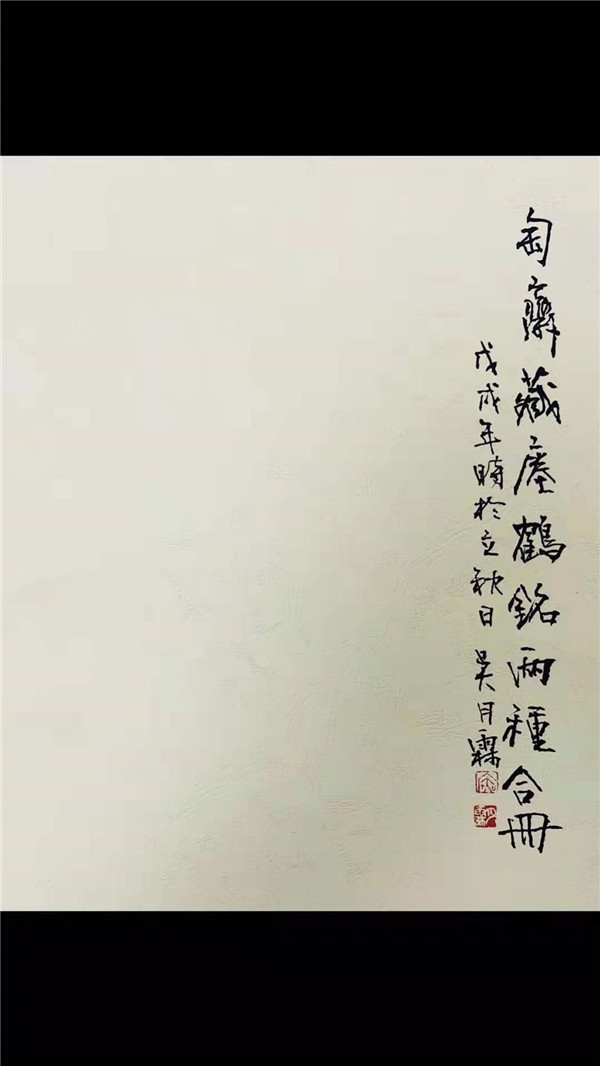 匋齋藏瘞鶴銘兩種合冊
戊戌年時於立秋日 吴月霖